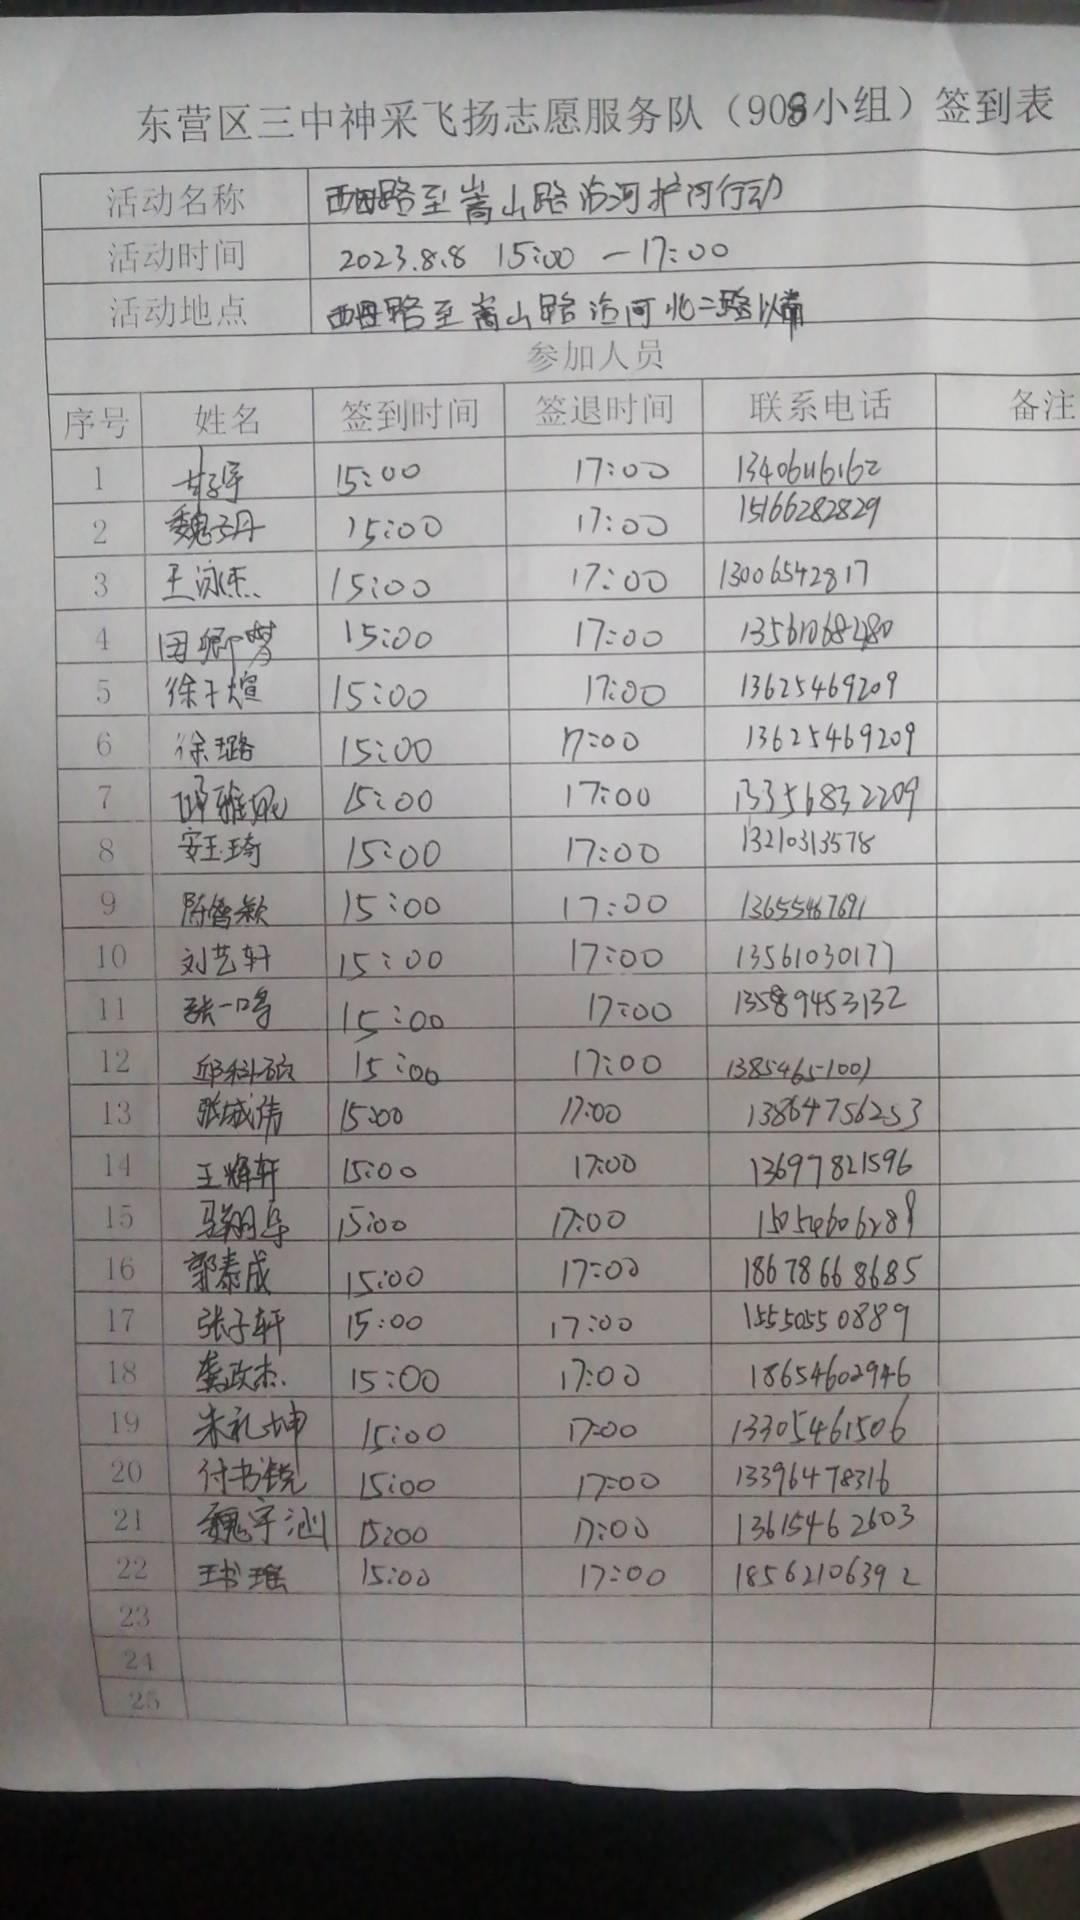 东营区三中神采飞扬志愿服务队（908小组）签到表
活动名称 西四路至嵩山路沿河护河行动
活动时间 2023.8.8 15:00 — 17:00
活动地点 西四路至嵩山路沿河北二路以南
参加人员
序号 姓名 签到时间 签退时间 联系电话 备注
1 15:00 17:00 13406446162
2 魏子丹 15:00 17:00 15166282829
3 王泳杰 15:00 17:00 13006542817
4 田卿梦 15:00 17:00 13561068280
5 徐子煊 15:00 17:00 13625469209
6 徐璐 15:00 17:00 13625469209
7 15:00 17:00 13356832209
8 安玉琦 15:00 17:00 13210313578
9 陈鲁颖 15:00 17:00 13655467691
10 刘艺轩 15:00 17:00 13561030177
11 张一鸣 15:00 17:00 13589453132
12 邱科硕 15:00 17:00 13854651001
13 张城伟 15:00 17:00 13864756253
14 王烽轩 15:00 17:00 13697821596
15 15:00 17:00 15054606289
16 郭泰成 15:00 17:00 18678668685
17 张子轩 15:00 17:00 15550550889
18 龚政杰 15:00 17:00 18654602946
19 朱礼坤 15:00 17:00 13305461506
20 付书锐 15:00 17:00 13396478316
21 魏宇涵 15:00 17:00 13615462603
22 王书瑶 15:00 17:00 18562106392
23
24
25